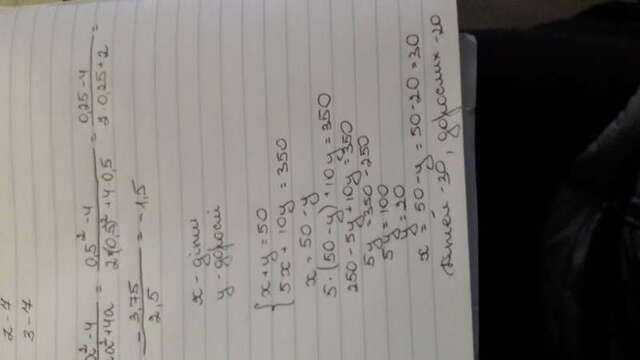 2-7
3-7
a²-4 / 2a²+4a = 0,5²-4 / 2·(0,5)²+4·0,5 = 0,25-4 / 2·0,25+2 =
-3,75 / 2,5 = -1,5
x - діти
y - дорослі
{ x+y=50
5x+10y=350
x=50-y
5·(50-y)+10y=350
250-5y+10y=350
5y=350-250
5y=100
y=20
x=50-y=50-20=30
Дітей -30, дорослих -20